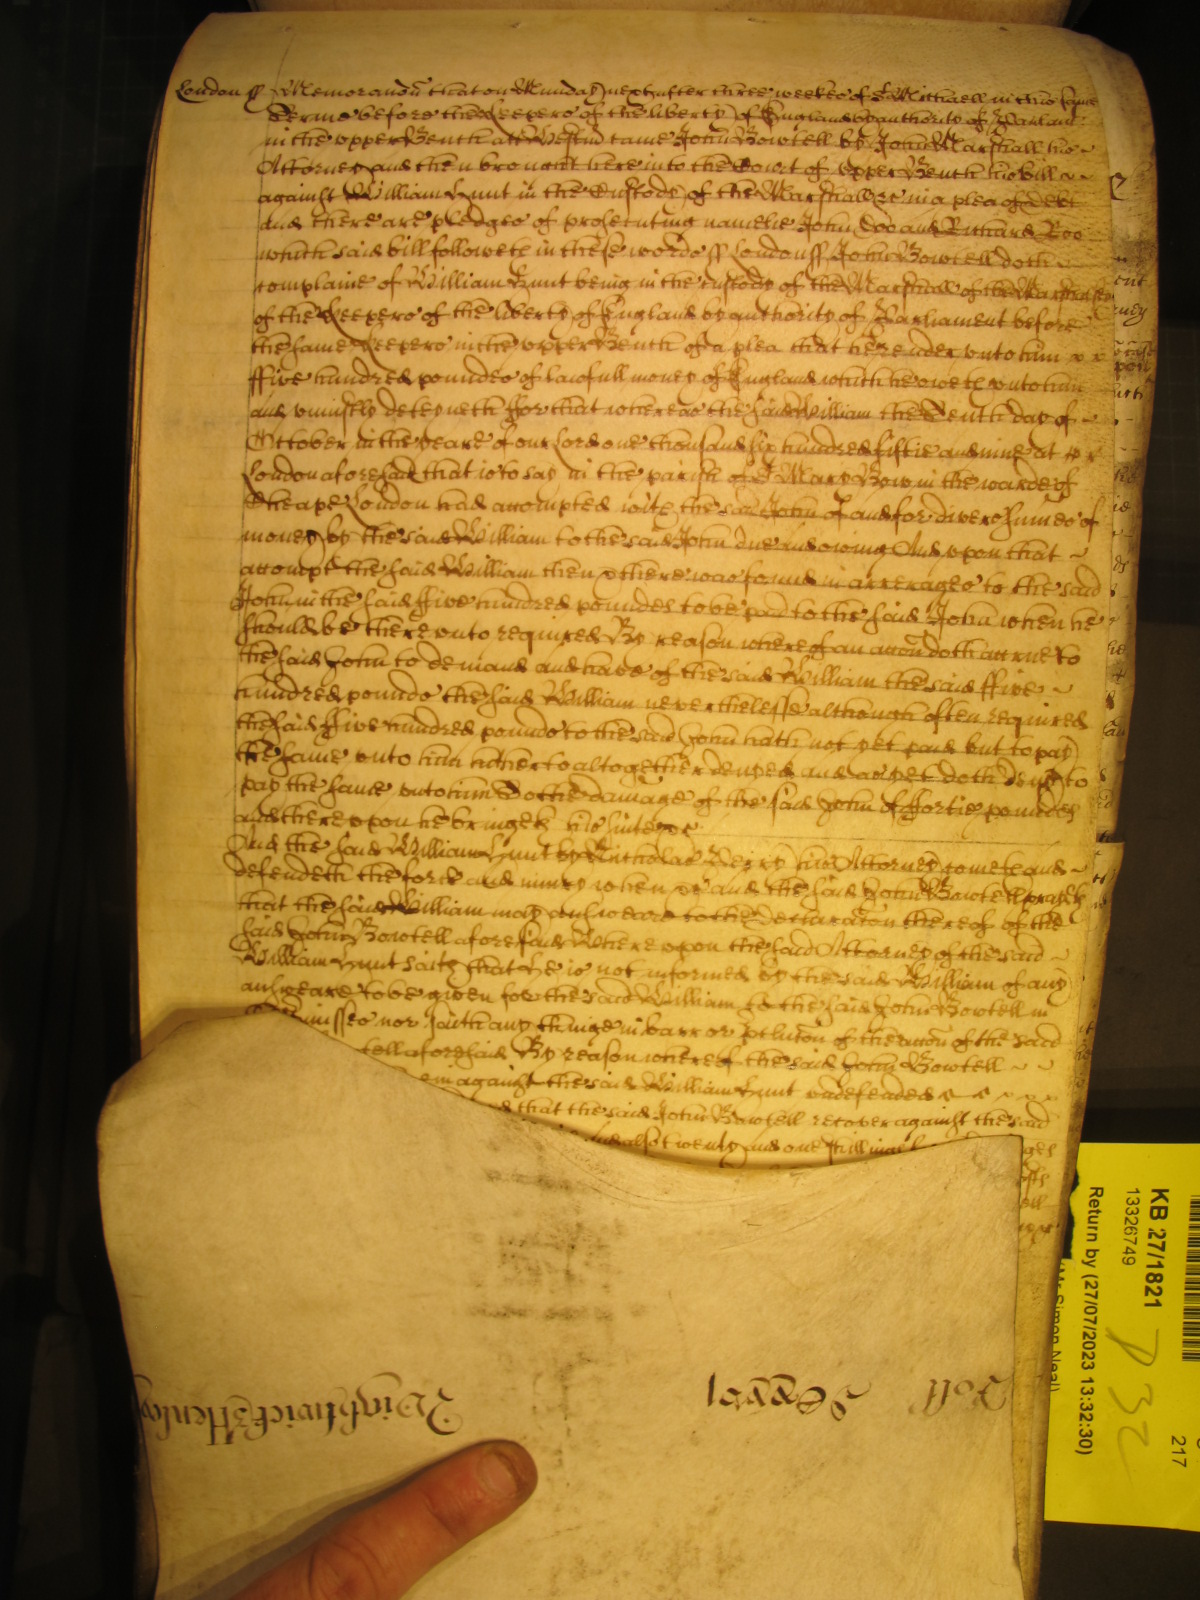 London ss Memorandu that on Munday next after three weekes of St Michaell in this same
Terme before the Keepers of the liberty of England by authority of Parliam
in the upper Bench att Westm came John Bowtell by John Marshall his
Attorney and then brought here into the Court of Upper Bench his bill
against William Hunt in the Custody of the Marshall &c in a plea of debt
and there are pledges of prosecuting namelie John Doo and Richard Roo
which said bill followeth in these wordes ss London ss John Bowtell doth
complaine of William Hunt being in the custody of the Marshall of the Marshalsea
of the Keepers of the liberty of England by authority of Parliament before
the same Keepers in the upper Bench of a plea that he render unto him
ffive hundred poundes of lawfull money of England which he oweth unto him
and uniustly deteyneth ffor that whereas the said William the Tenth day of
October in the yeare of our Lord one thousand six hundred fiftie and nine at
London aforesaid that is to say in the parish of St Mary Bow in the warde of
Cheape London had accompted with the said John of and for divers sumes of
money by the said William to the said John due and owing And upon that
accompt the said William then & there was found in arrerages to the said
John in the said ffive hundred poundes to be paid to the said John when he
should be there unto required By reason whereof an accon doth accrue to
the said John to demand and have of the said William the said ffive
hundred pounds the said William neverthelesse although often required
the said ffive hundred pounds to the said John hath not yet paid but to pay
the same unto him hitherto altogether denyed and as yet doth deny to
pay the same unto him To the damage of the said John of ffortie poundes
and thereupon he bringeth his suite &c
And the said William Hunt by Nicholas Berry his Attorney cometh and
defendeth the force and iniury when &c and the said John Bowtell prayeth
that the said William may answeare to the Declaracon thereof of the
said John Bowtell aforesaid Whereupon the said Attorney of the said
William Hunt saith that he is not informed by the said William of any
answeare to be given for the said William to the said John Bowtell in
misses nor saith any thinge in barr or pclusion of the accon of the said
tell aforesaid By reason whereof the said John Bowtell
against the said William Hunt undefended
that the said John Bowtell recover against the said
and also twenty and one shillings
Wightwick & Henley
Roll
KB 27/1821
13326749
Return by (27/07/2023 13:32:30)
(Mr Simon Neal)
217